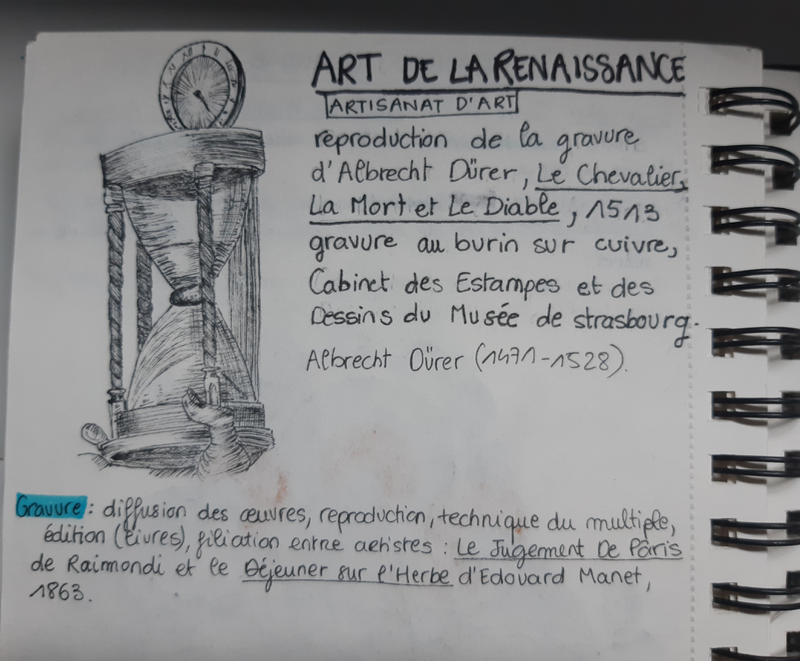 ART DE LA RENAISSANCE
ARTISANAT D'ART
reproduction de la gravure
d'Albrecht Dürer, Le Chevalier,
La Mort et Le Diable, 1513
gravure au burin sur cuivre,
Cabinet des Estampes et des
Dessins du Musée de strasbourg.
Albrecht Dürer (1471-1528).
Gravure : diffusion des œuvres, reproduction, technique du multiple,
édition (Livres), filiation entre artistes : Le Jugement De Pâris
de Raimondi et le Déjeuner sur l'Herbe d'Edouard Manet,
1863.